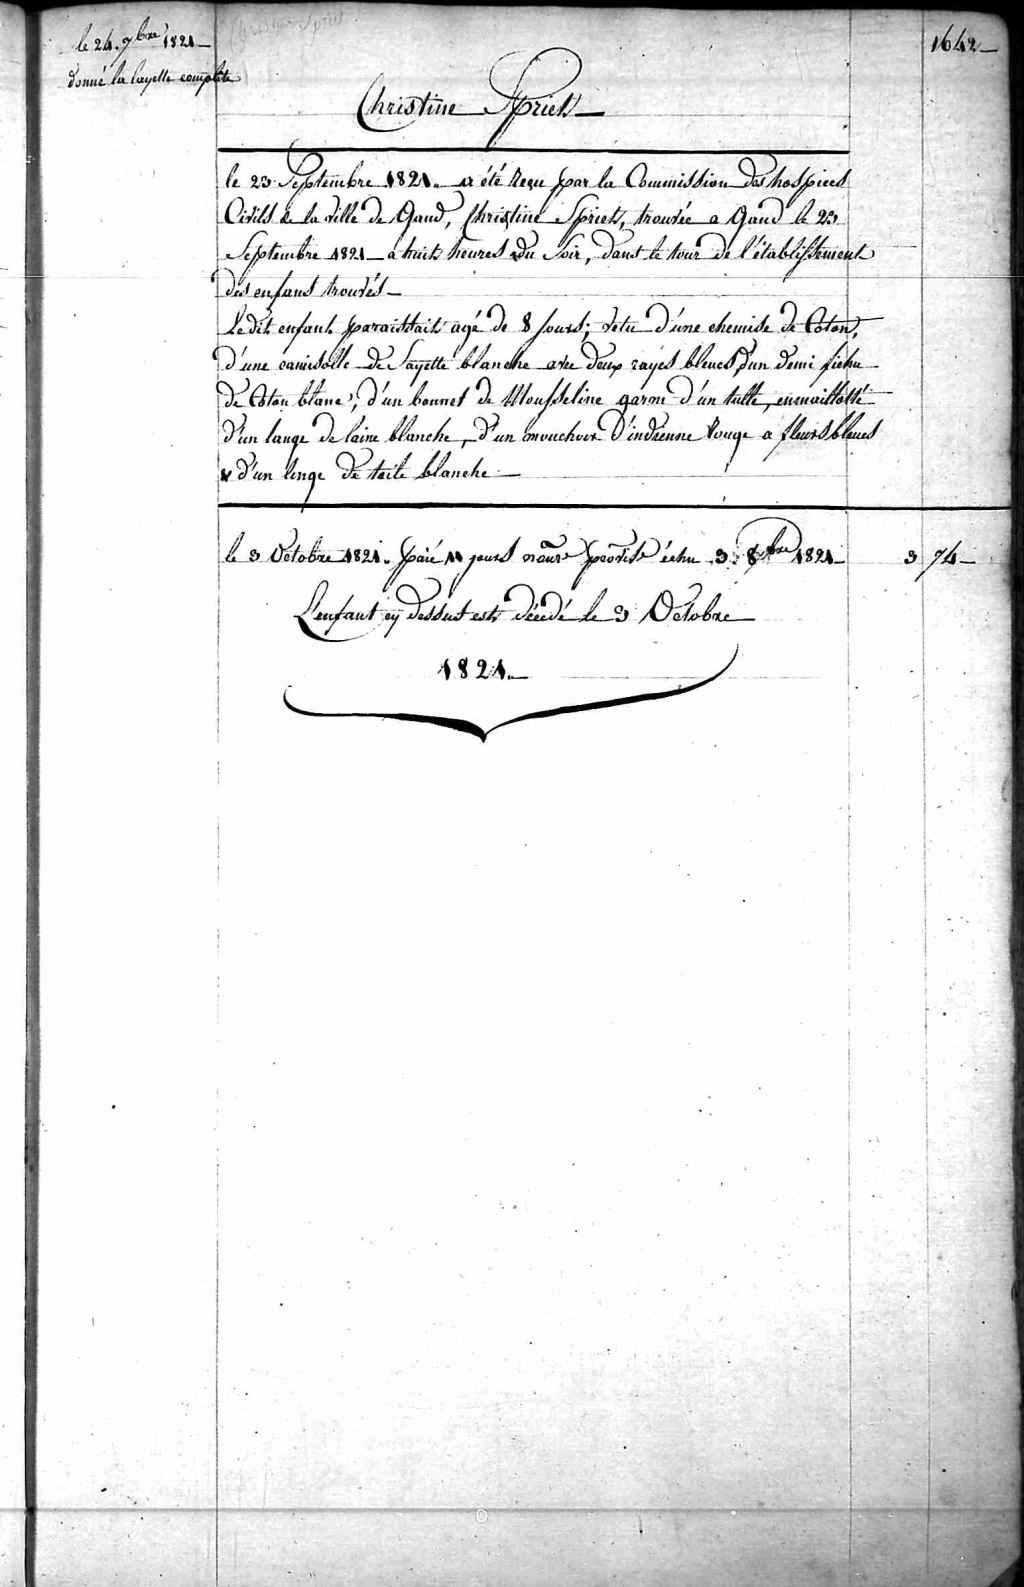 le 24. 7bre 1821 —
donné la layette complète
1642 —
Christine Spriet —
le 23 Septembre 1821. a été Reçu par la Commission des hospices
Civils de la ville de Gand, Christine Spriet, trouvée a Gand le 23
Septembre 1821 — a huit heures du Soir, dans le tour de l'établissement
des enfans trouvés —
Ledit enfant paraissait agé de 8 Jours; vetu d'une chemise de Coton,
d'une camisolle de Sayette blanche avec deux rayes bleues, d'un demi fichu
de Coton blanc, d'un bonnet de Mousseline garni d'un tulle, enmaillotté
d'un lange de laine blanche, d'un mouchoir d'indienne Rouge a fleurs bleues
& d'un linge de toile blanche —
le 3 Octobre 1821. païé 11 jours échu 3. 8bre 1821 — 3 74 —
L'enfant cÿ dessus est décédé le 3 Octobre
1821. —